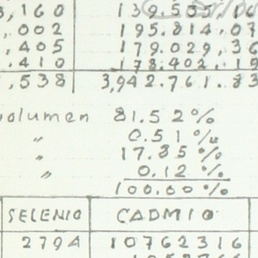 ,160 139.505,16
,002 195.814,07
,405 179.029,36
,410 178.402,19
,538 3,942.761.83
volumen 81.52%
" 0.51%
" 17.85%
" 0.12%
100.00%
SELENIO CADMIO
2794 10762316